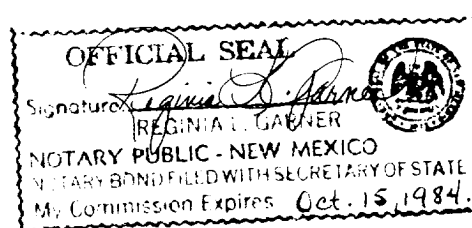 OFFICIAL SEAL
Signature Reginia L. Garner
REGINIA L. GARNER
NOTARY PUBLIC - NEW MEXICO
NOTARY BOND FILED WITH SECRETARY OF STATE
My Commission Expires Oct. 15, 1984.